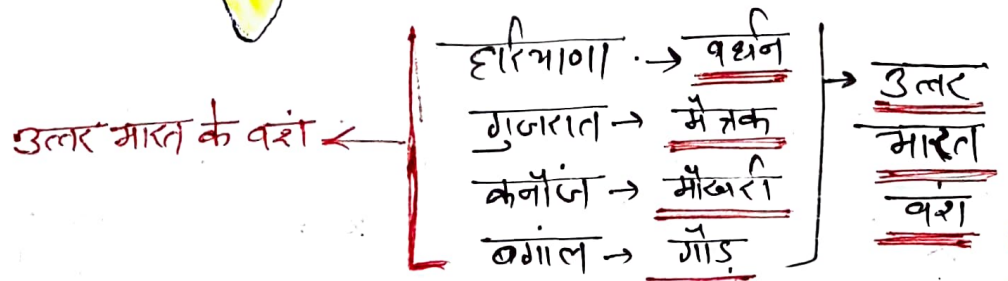 उत्तर भारत के वशं ←
हरियाणा → वर्धन
गुजरात → मैत्रक
कनौजं → मौखरी
बगांल → गौड़
→ उत्तर
भारत
वंश